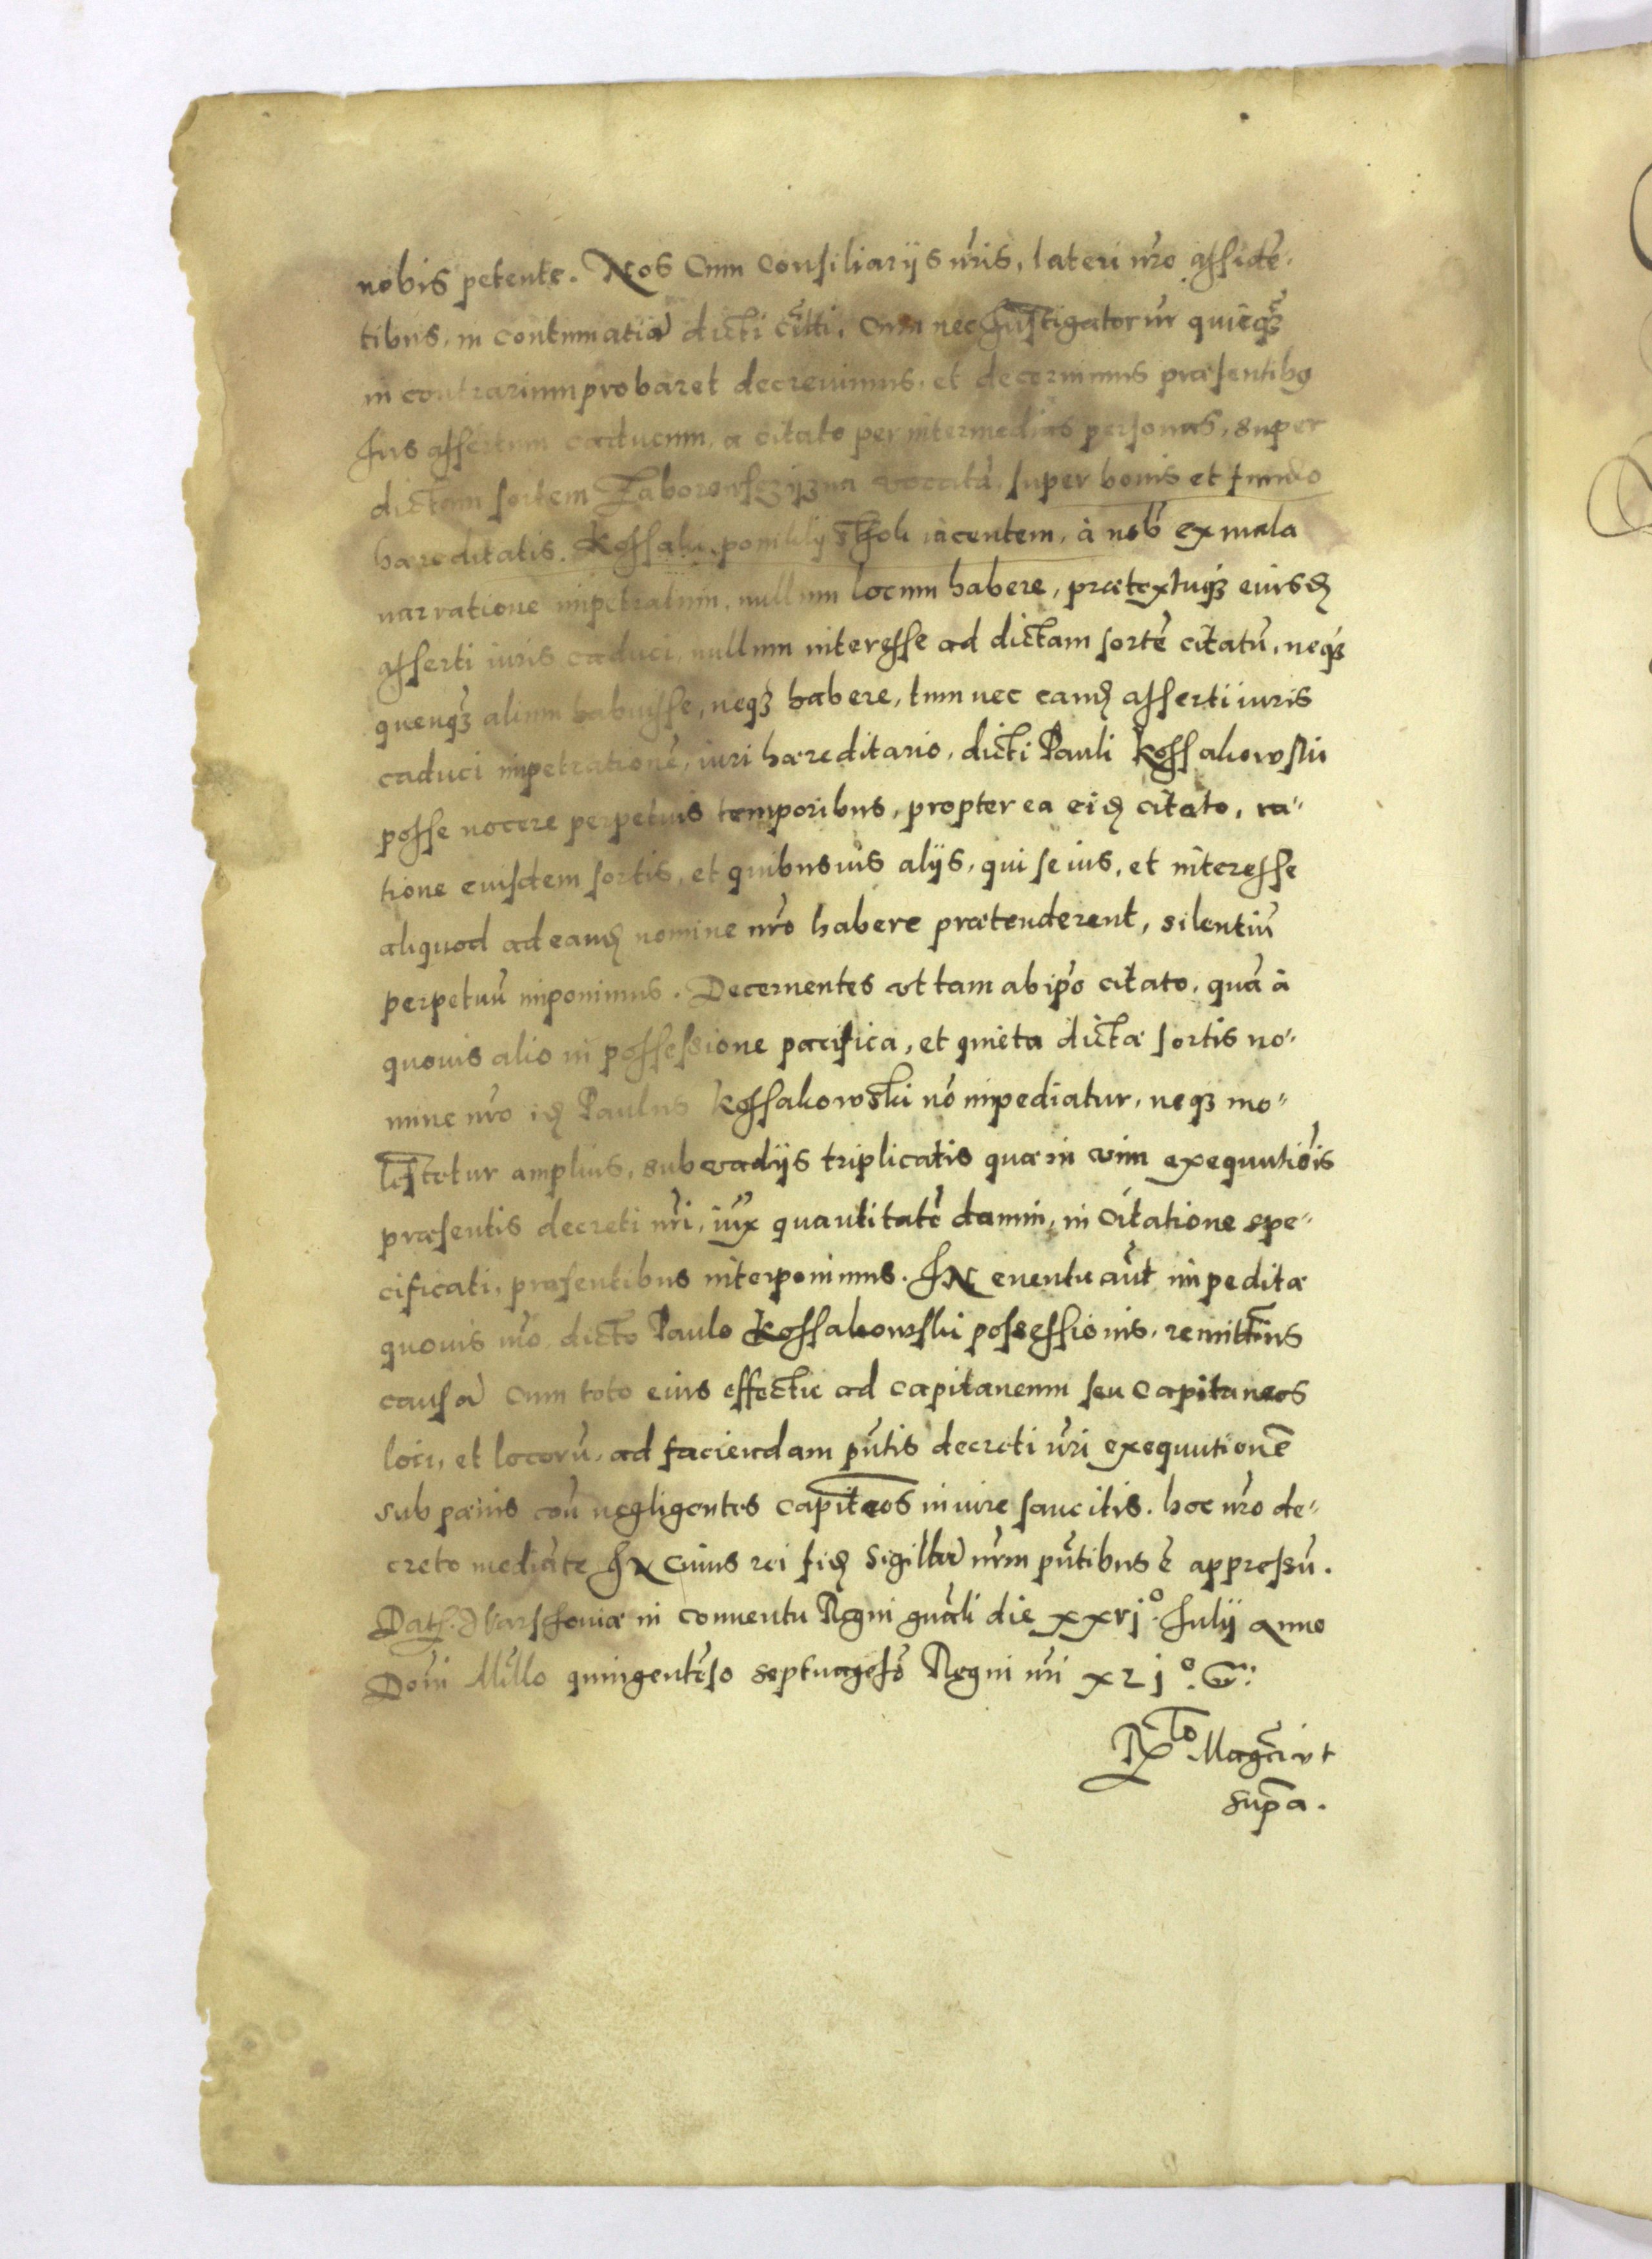 nobis petente. Nos Cum Consiliarijs nr̃is, lateri nr̃o assidẽ-
tibus, in contumatiã dicti cit̃ti, Cum nec Instigatorũ quicq̃ꝫ
in contrarium probaret decrevimus, et decernimus præsentibꝯ
Ius assertum caducum, a citato per intermedias personas, super
dictam sortem Zaborowsczÿzna vocatã, super bonis et fundo
hæreditatis. Kossaki iacentem, à nob̃ ex mala
narratione impetratum, nullum locum habere, prætextuqꝫ eiusd
asserti iuris caduci, nullum interesse ad dictam sortẽ citatũ, neqꝫ
quenqꝫ alium habuisse, neqꝫ habere, tum nec eand asserti iuris
caduci impetrationẽ, iuri hæreditario, dicti Pauli Kossakowski
posse nocere perpetuis temporibus, propterea eid citato, ra-
tione eiusdem sortis, et quibusvis alijs, qui se ius, et interesse
aliquod ad eand nomine nr̃o habere prætenderent, silentiũ
perpetuũ imponimus. Decernentes vt tam ab ip̃o citato, quã à
quovis alio in possessione pacifica, et quieta dictæ sortis no-
mine nr̃o id Paulus Kossakowski nõ impediatur, neqꝫ mo-
lestetur amplius, sub vadijs triplicatis quæ in vim exequutiõis
præsentis decreti nr̃i, iux̃ quantitatẽ damni, in Citatione spe-
cificati, præsentibus interponimus. IN euentu aũt impeditæ
quovis mõ dicto Paulo Kossakowski possessionis, remittim̃s
causã Cum toto eius effectu ad capitaneum seu Capitaneos
loci, et locorũ, ad faciendam pñtis decreti nr̃i exequutionẽ
sub pænis coñ negligentes capit̃eos in iure sancitis. hoc nr̃o de-
creto mediãte IN Cuius rei fid Sigillũ nr̃m pñtibus ẽ appressũ.
Dat. Warschoviæ in conuentu Regni gñali die xxvjº. Julij Anno
Dõni Mill̃o quingentẽso septuagesõ Regni nr̃i xljº. G̃:
Rx̃ to Mag̃ci vt
sup̃a.